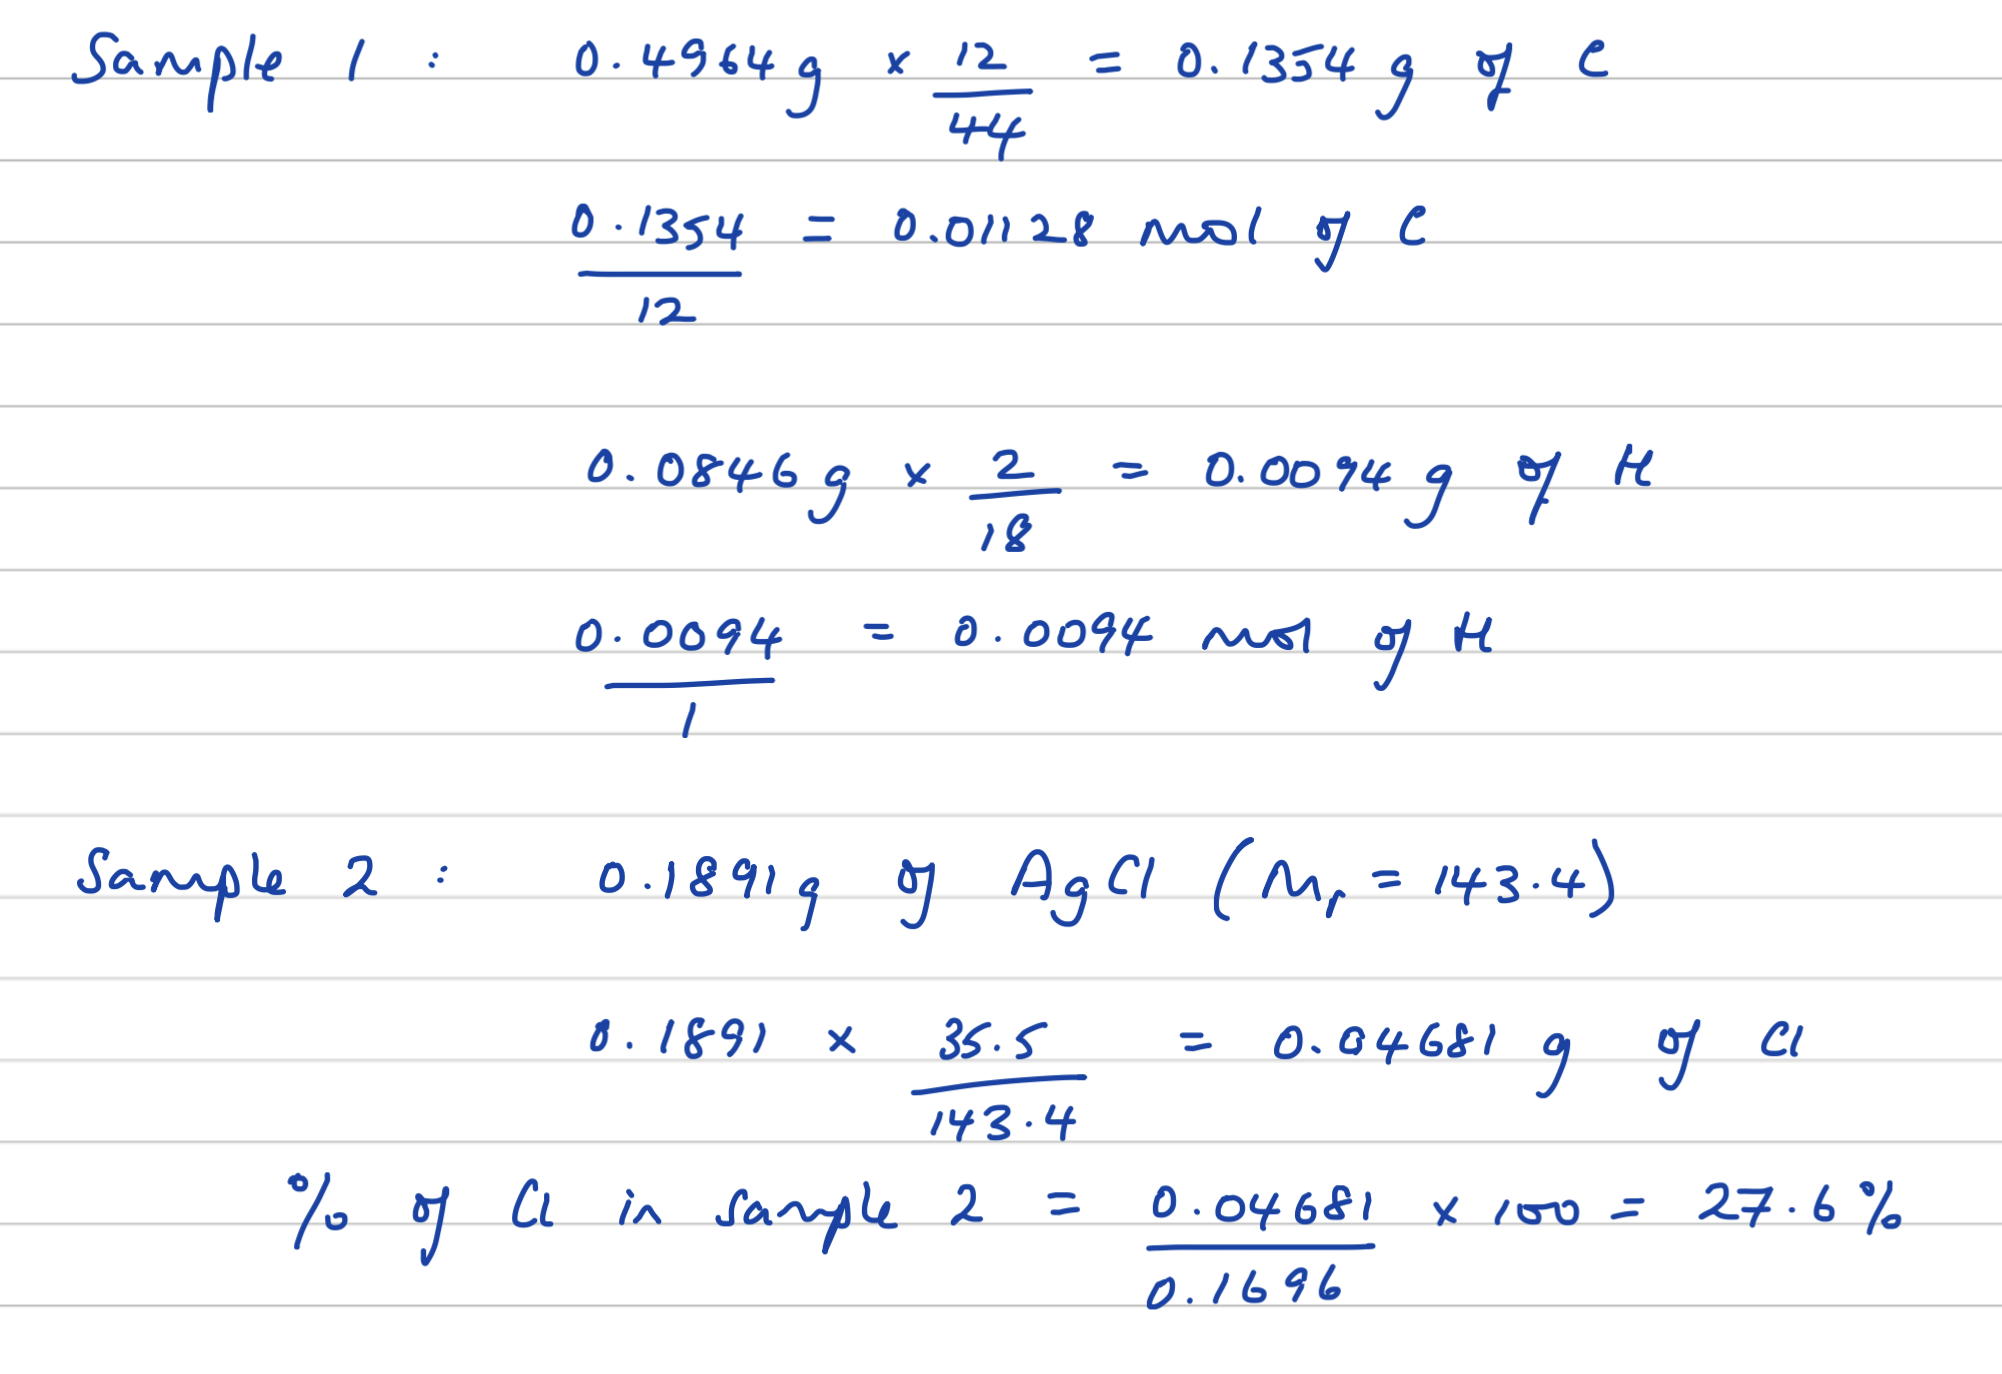 Sample 1 : 0.4964 g × 12/44 = 0.1354 g of C
0.1354/12 = 0.01128 mol of C
0.0846 g × 2/18 = 0.0094 g of H
0.0094/1 = 0.0094 mol of H
Sample 2 : 0.1891 g of AgCl (Mr = 143.4)
0.1891 × 35.5/143.4 = 0.04681 g of Cl
% of Cl in sample 2 = 0.04681/0.1696 × 100 = 27.6%